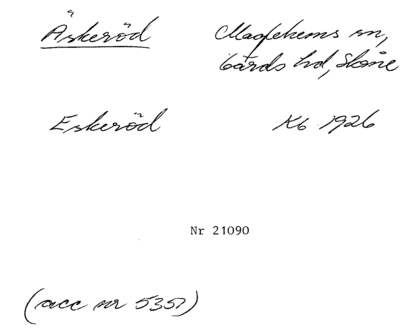 Äskeröd Maglehems sn,
Gärds hd, Skåne
Eskeröd Kb 1926
Nr 21090
(acc nr 5351)